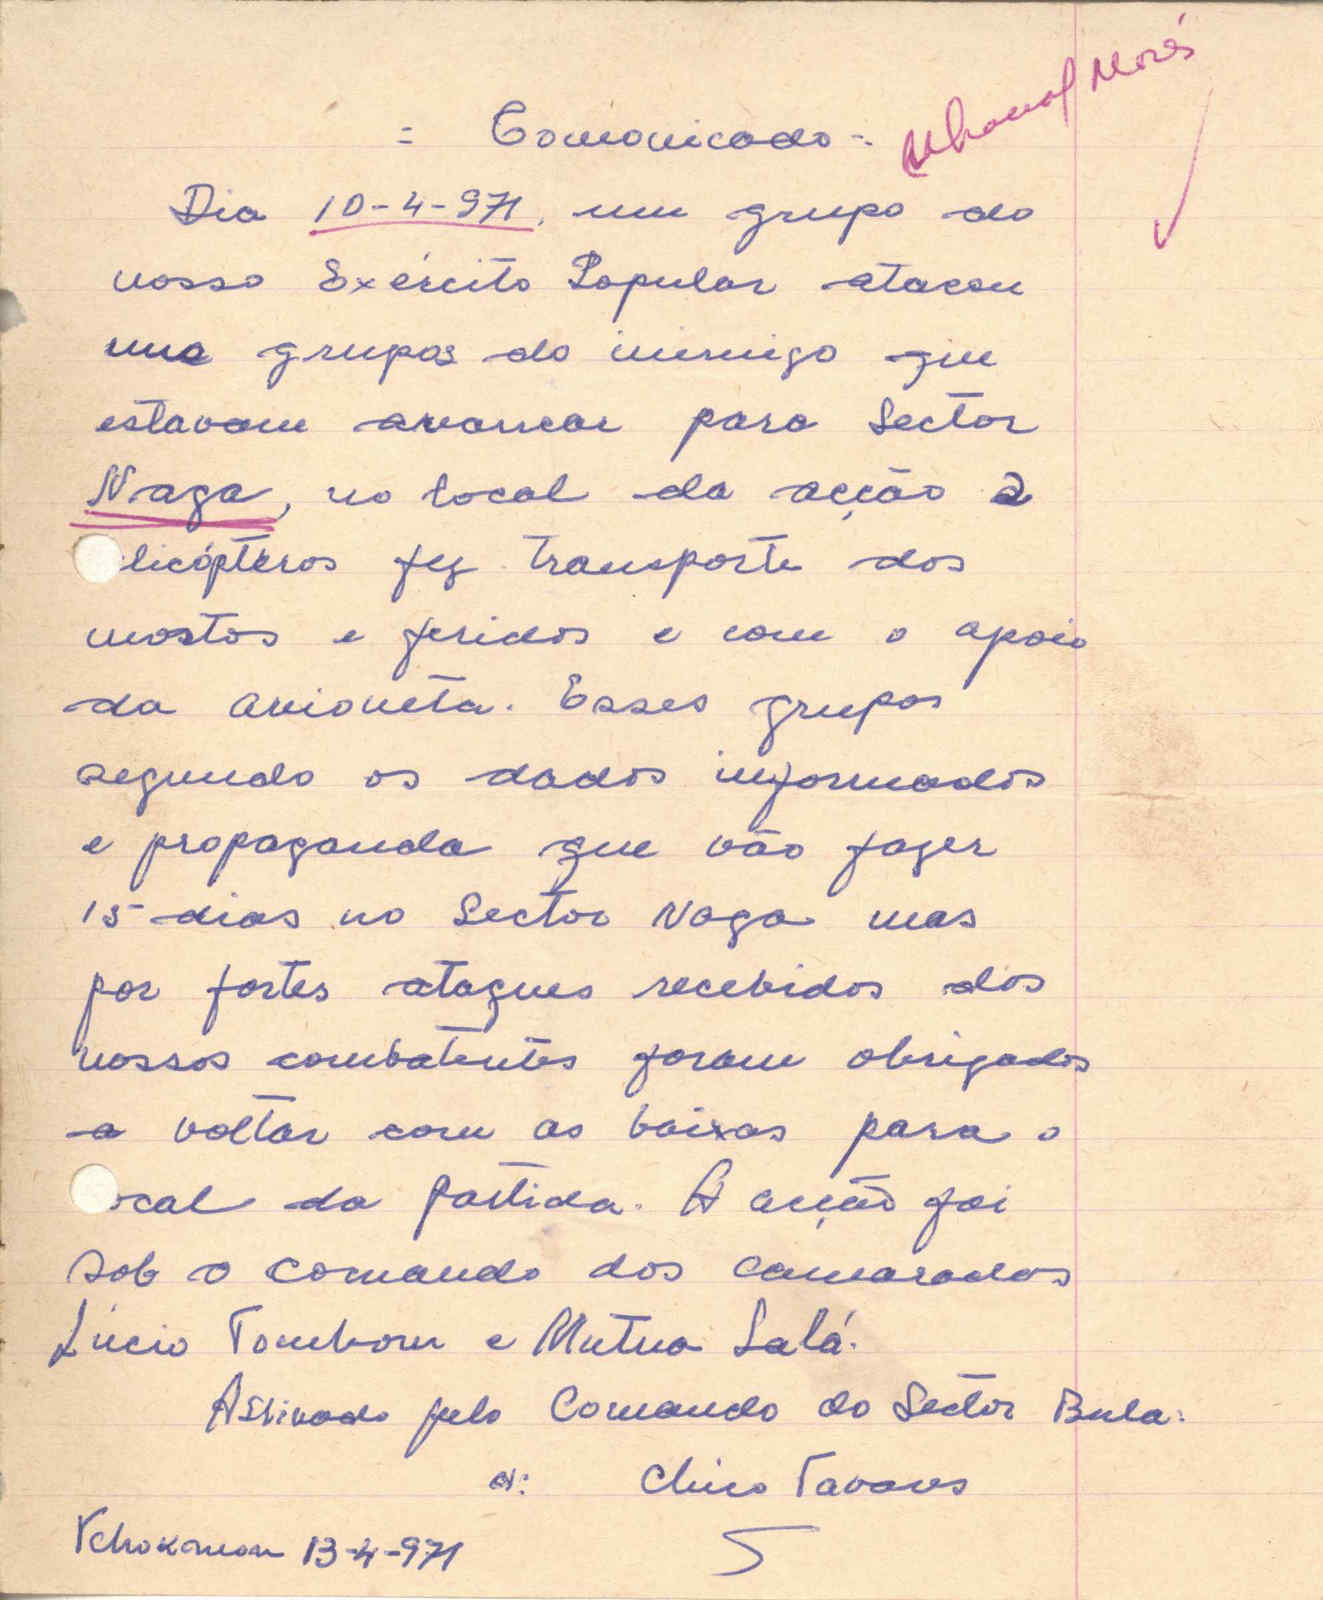 = Comonicado =
Dia 10-4-971, um grupo do
nosso Exército Popular atacou
uns grupos do inimigo que
estavam avancar para Sector
Naga, no local da acção 2
licópteros fez transporte dos
mortos e feridos e com o apoio
da avioneta. Esses grupos
segundo os dados informados
e propaganda que vão fazer
15 dias no Sector Naga mas
por fortes ataques recebidos dos
nossos combatentes foram obrigados
a voltar com as baixas para o
ocal da partida. A acção foi
sob o comando dos camaradas
Lúcio Tombom e Mutna Salá.
Assinado pelo Comando do Sector Bula:
a: Chico Tavares
13-4-971